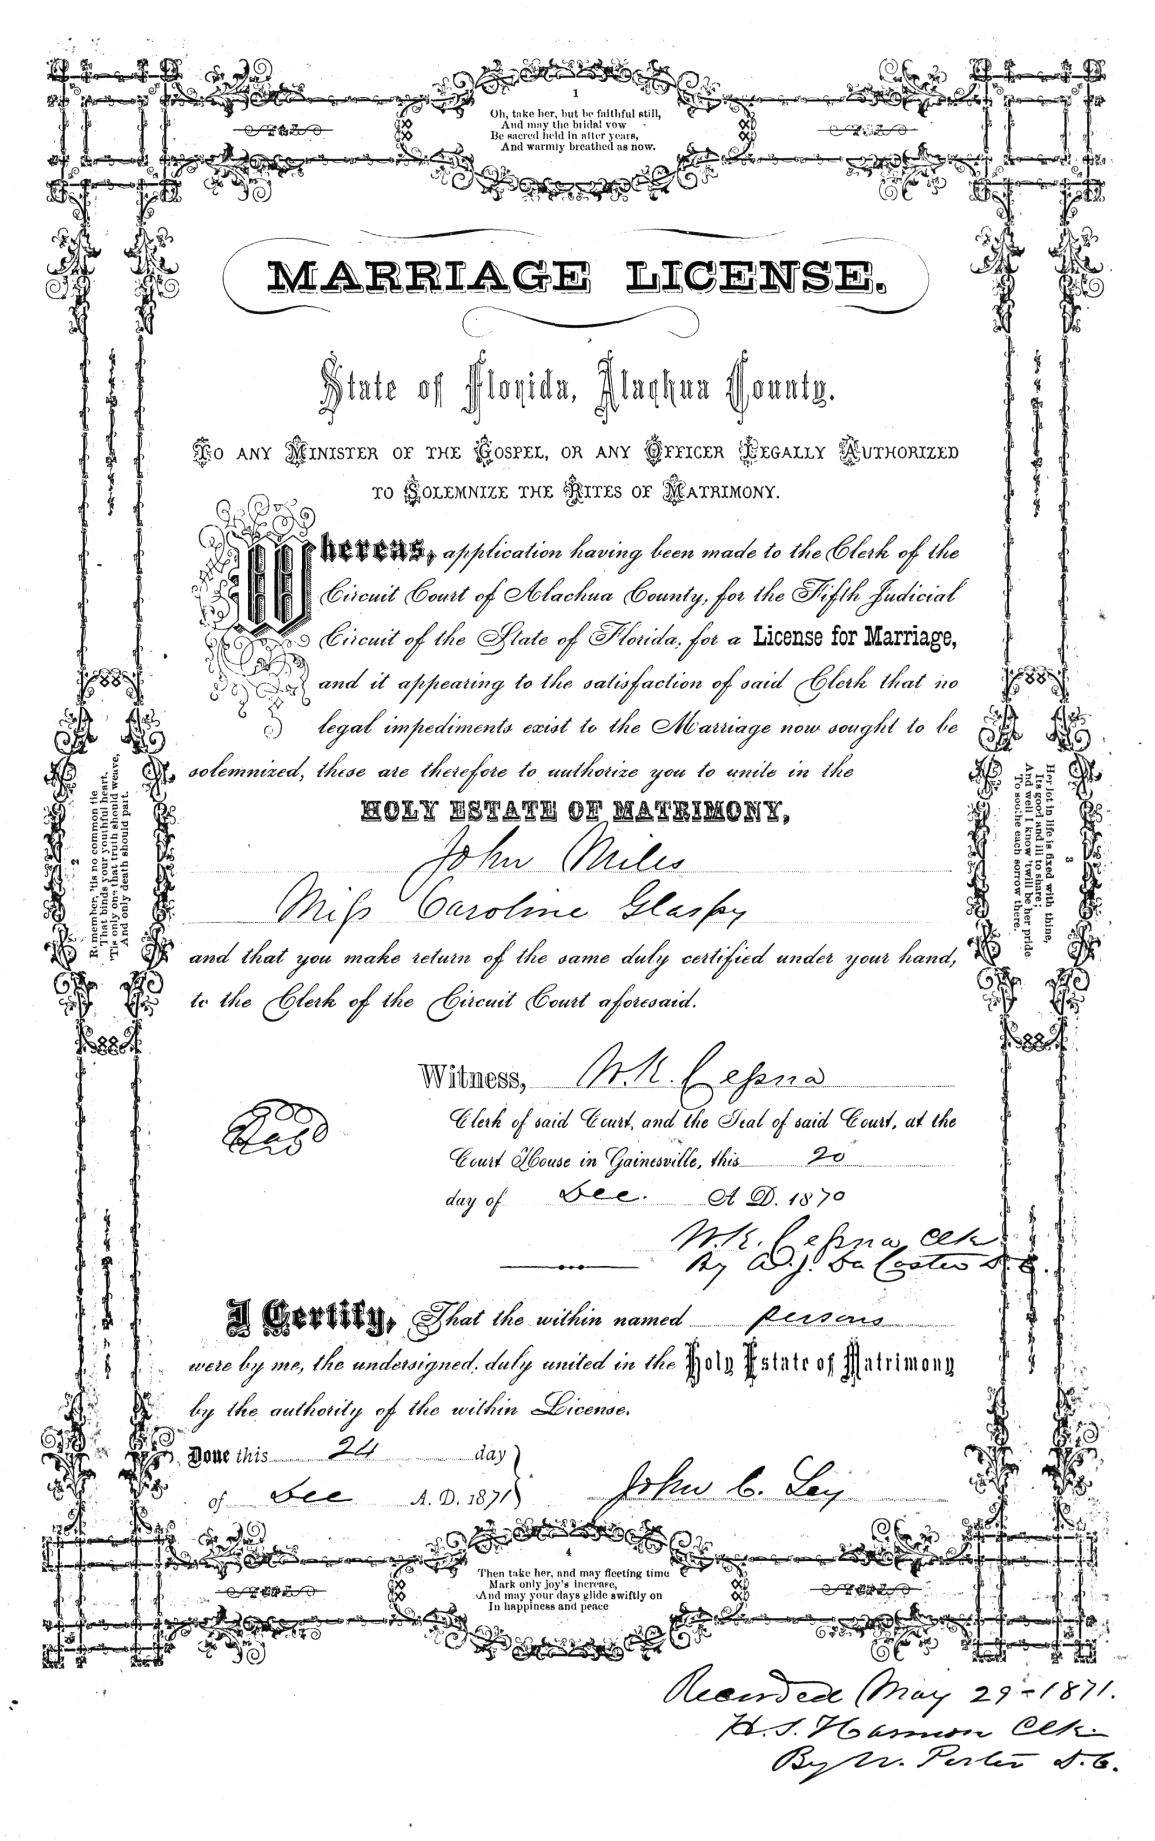 1
Oh, take her, but be faithful still,
And may the bridal vow
Be sacred held in after years,
And warmly breathed as now.
MARRIAGE LICENSE.
State of Florida, Alachua County.
TO ANY MINISTER OF THE GOSPEL, OR ANY OFFICER LEGALLY AUTHORIZED
TO SOLEMNIZE THE RITES OF MATRIMONY.
Whereas, application having been made to the Clerk of the
Circuit Court of Alachua County, for the Fifth Judicial
Circuit of the State of Florida, for a License for Marriage,
and it appearing to the satisfaction of said Clerk that no
legal impediments exist to the Marriage now sought to be
solemnized, these are therefore to authorize you to unite in the
HOLY ESTATE OF MATRIMONY,
John Miles
Miss Caroline Glaspy
and that you make return of the same duly certified under your hand,
to the Clerk of the Circuit Court aforesaid.
2
Remember, 'tis no common tie
That binds your youthful heart,
'Tis only one that truth should weave,
And only death should part.
3
Her lot in life is fixed with thine,
Its good and ill to share;
And well I know 'twill be her pride
To soothe each sorrow there.
Witness, W. K. Cessna
Clerk of said Court, and the Seal of said Court, at the
Court House in Gainesville, this 20
day of Dec. A. D. 1870
W. K. Cessna Clk
By A. J. Da Costa D. C.
I Certify, That the within named persons
were by me, the undersigned, duly united in the Holy Estate of Matrimony
by the authority of the within License.
Done this 24 day
of Dec A. D. 1871
John C. Ley
4
Then take her, and may fleeting time
Mark only joy's increase,
And may your days glide swiftly on
In happiness and peace
Recorded May 29-1871.
H. S. Harmon Clk.
By W. Porter D. C.